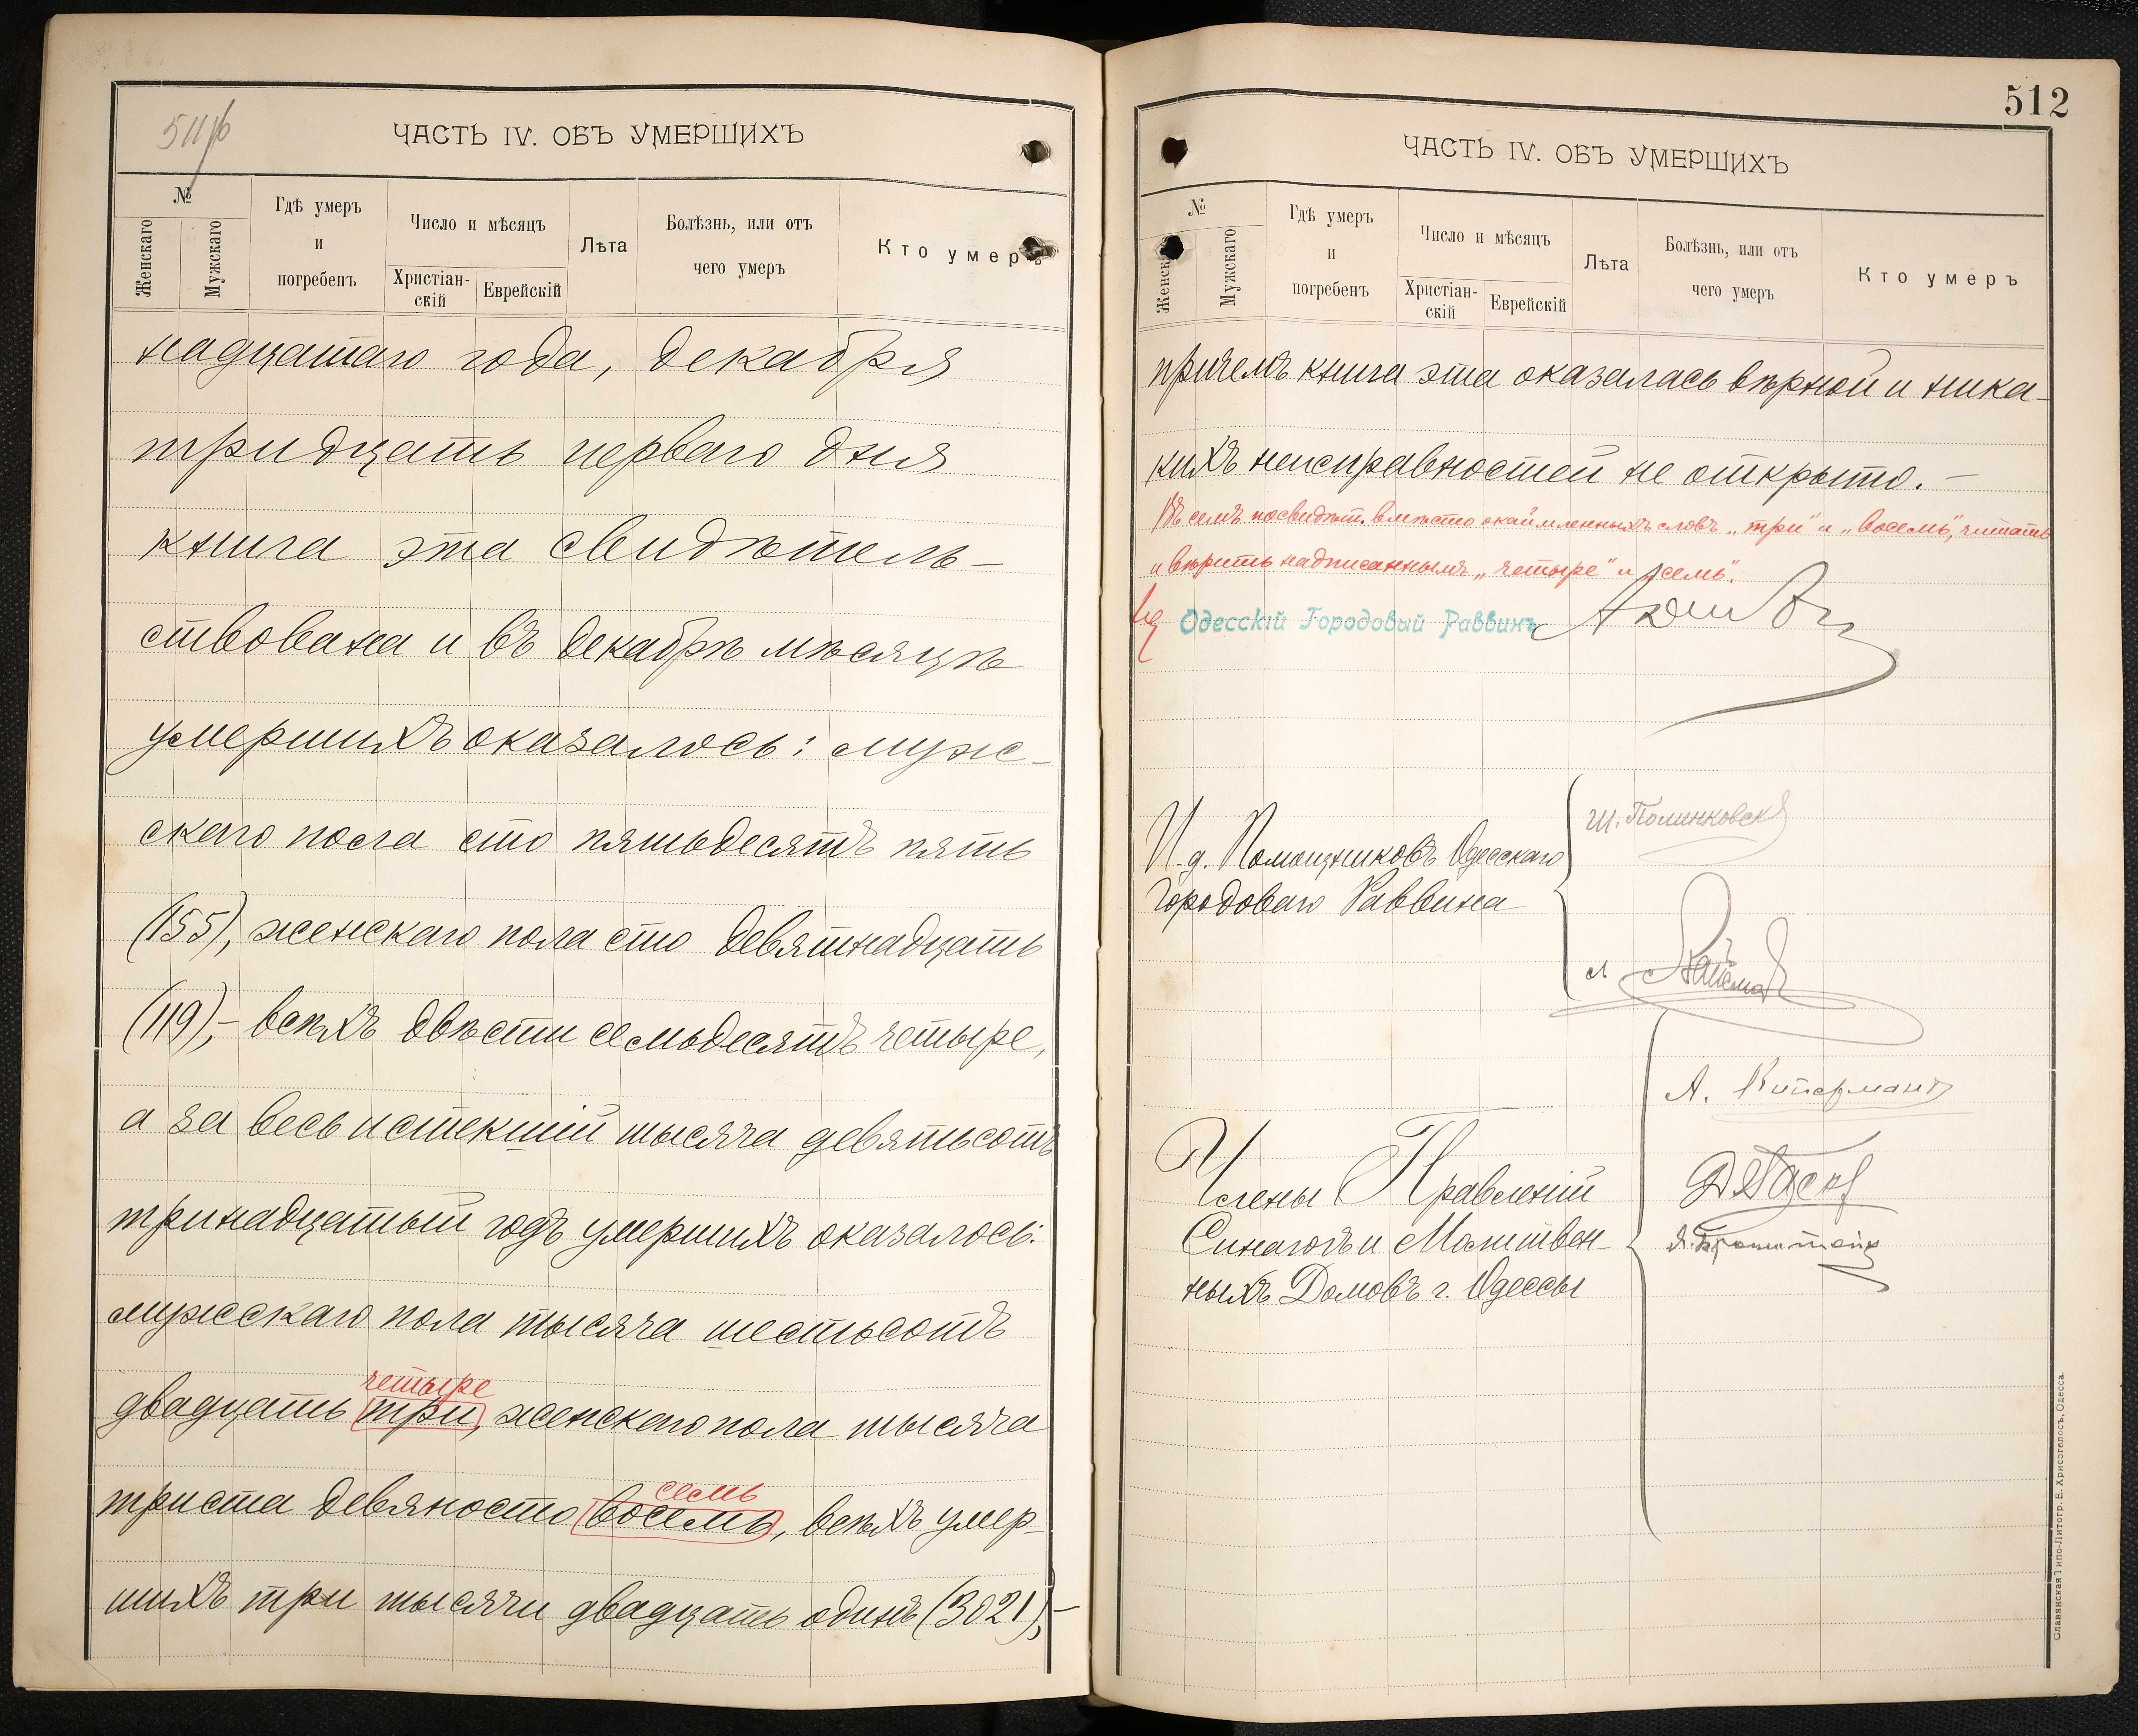 511/б
ЧАСТЬ IV. ОБЪ УМЕРШИХЪ
№
Женскаго
Мужскаго
Гдѣ умеръ
и
погребенъ
Число и мѣсяцъ
Христіан-
скій
Еврейскій
Лѣта
Болѣзнь, или отъ
чего умеръ
Кто умеръ
надцатаго года, декабря
тридцать перваго дня
книга эта свидѣтель-
ствована и въ декабрѣ мѣсяцѣ
умершихъ оказалось: муж-
скаго пола сто пятьдесятъ пять
(155), женскаго пола сто девятнадцать
(119),- всѣхъ двѣсти семьдесятъ четыре,
а за весь истекшій тысяча девятьсотъ
тринадцатый годъ умершихъ оказалось:
мужскаго пола тысяча шестьсотъ
четыре
двадцать три, женскаго пола тысяча
семь
триста девяносто восемь, всѣхъ умер-
шихъ три тысячи двадцать одинъ (3021),-
512
ЧАСТЬ IV. ОБЪ УМЕРШИХЪ
№
Женск
Мужскаго
Гдѣ умеръ
и
погребенъ
Число и мѣсяцъ
Христіан-
скій
Еврейскій
Лѣта
Болѣзнь, или отъ
чего умеръ
Кто умеръ
причемъ книга эта оказалась вѣрной и ника-
кихъ неисправностей не открыто.-
Въ семъ посвидѣт. вмѣсто окаймленныхъ словъ „три" и „восемь", читать
и вѣрить надписаннымъ „четыре" и „семь".
Одесскій Городовый Раввинъ
И. д. Помощниковъ Одесскаго
Городоваго Раввина
Ш. Полинковскій
Члены Правленій
Синагогъ и Молитвен-
ныхъ Домовъ г. Одессы
А. Куперманъ
Славянская Типо-Литогр. Е. Хрисогелосъ, Одесса.